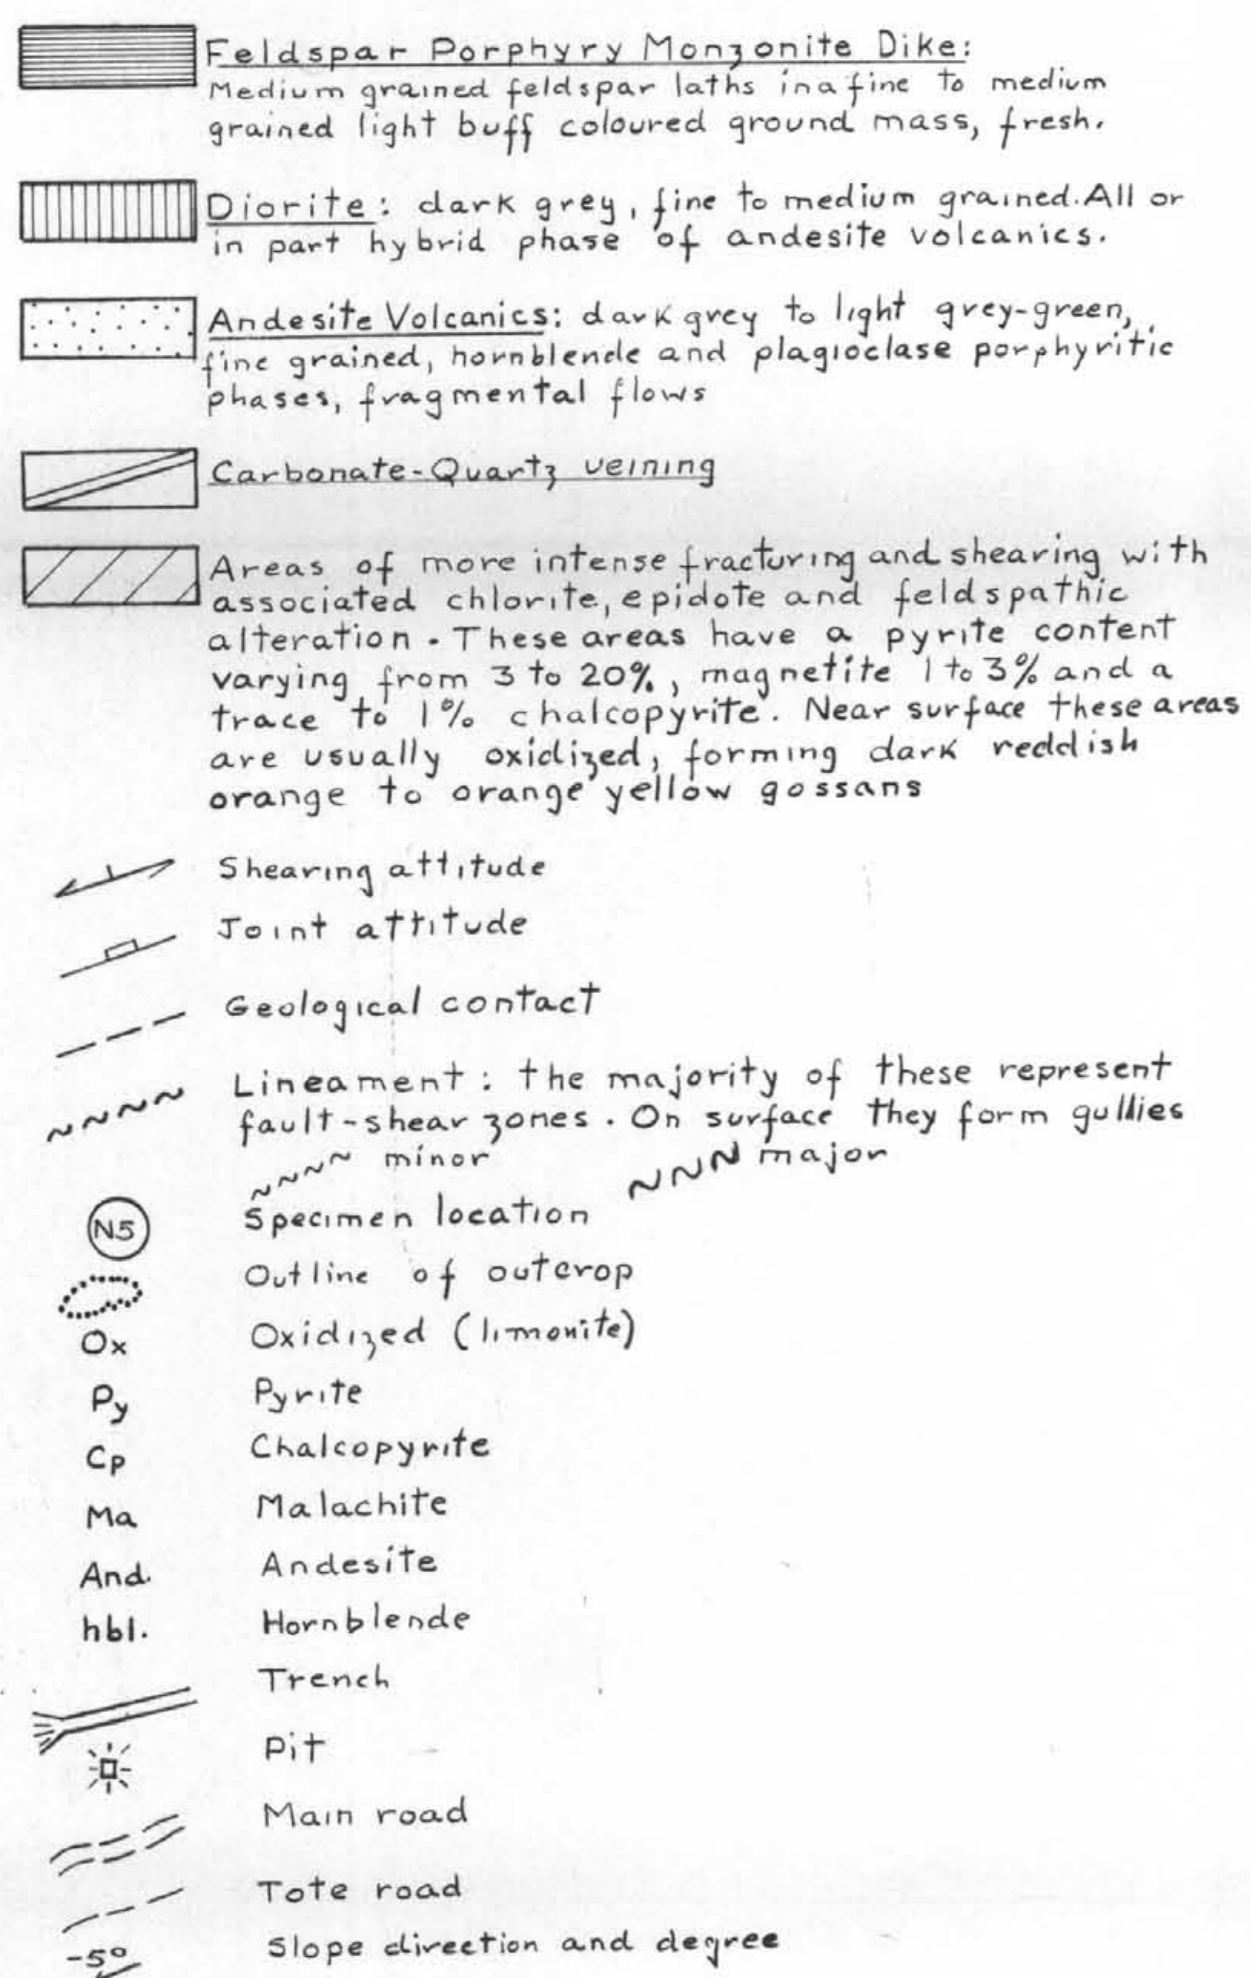 Feldspar Porphyry Monzonite Dike:
Medium grained feldspar laths in a fine to medium
grained light buff coloured ground mass, fresh.
Diorite: dark grey, fine to medium grained. All or
in part hybrid phase of andesite volcanics.
Andesite Volcanics: dark grey to light grey-green,
fine grained, hornblende and plagioclase porphyritic
phases, fragmental flows
Carbonate-Quartz veining
Areas of more intense fracturing and shearing with
associated chlorite, epidote and feldspathic
alteration. These areas have a pyrite content
varying from 3 to 20%, magnetite 1 to 3% and a
trace to 1% chalcopyrite. Near surface these areas
are usually oxidized, forming dark reddish
orange to orange yellow gossans
Shearing attitude
Joint attitude
Geological contact
Lineament: the majority of these represent
fault-shear zones. On surface they form gullies
minor major
N5 Specimen location
Outline of outcrop
Ox Oxidized (limonite)
Py Pyrite
Cp Chalcopyrite
Ma Malachite
And. Andesite
hbl. Hornblende
Trench
Pit
Main road
Tote road
-5° Slope direction and degree